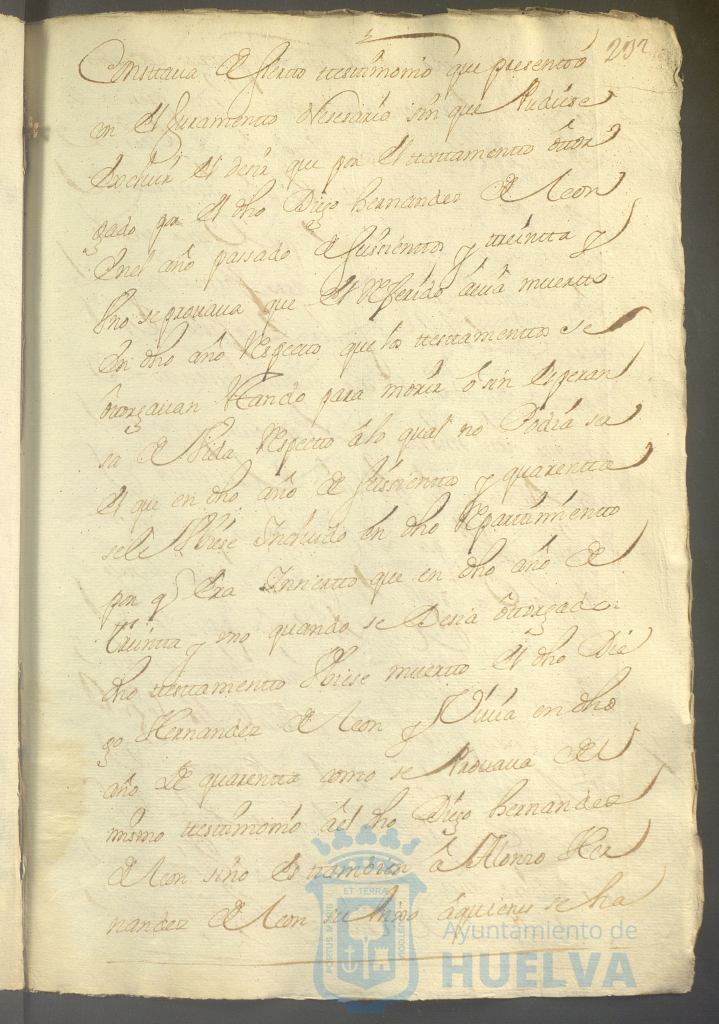 292
Consttaua de ziertto testtimonio que presentto
en el Juramentto Nesesario sin que Pudiese
Excluir el desir que por el testtamentto ôttor
gado por el dho Diego hernandez de Leon
Enel año passado de seiscienttos y treintta y
Vno se prouaua que el Referido âuia muertto
En dho año Respectto que los testtamenttos se
ôttorgauan estando para morir ô sin Esperan
sa de Vida Respecto âlo qual no Podia ser
el que en dho año de seiscienttos y quarentta
sele Vbiese Incluido en dho Repartimientto
por q Era Inziertto que en dho año de
treintta y vno quando se Desia ôttorgado
dho testtamentto Vbiese muertto el dho Die
go Hernandez de Leon y Viuia en dho
año de quarentta como se Prouaua del
mismo testtimonio âel dho Diego hernandez
de Leon sino es tambien â Alonzo Her
nandez de Leon su hijo âquienes se ha
PORTUS MARIS ET TERRAE CUSTODIA
Ayuntamiento de
HUELVA